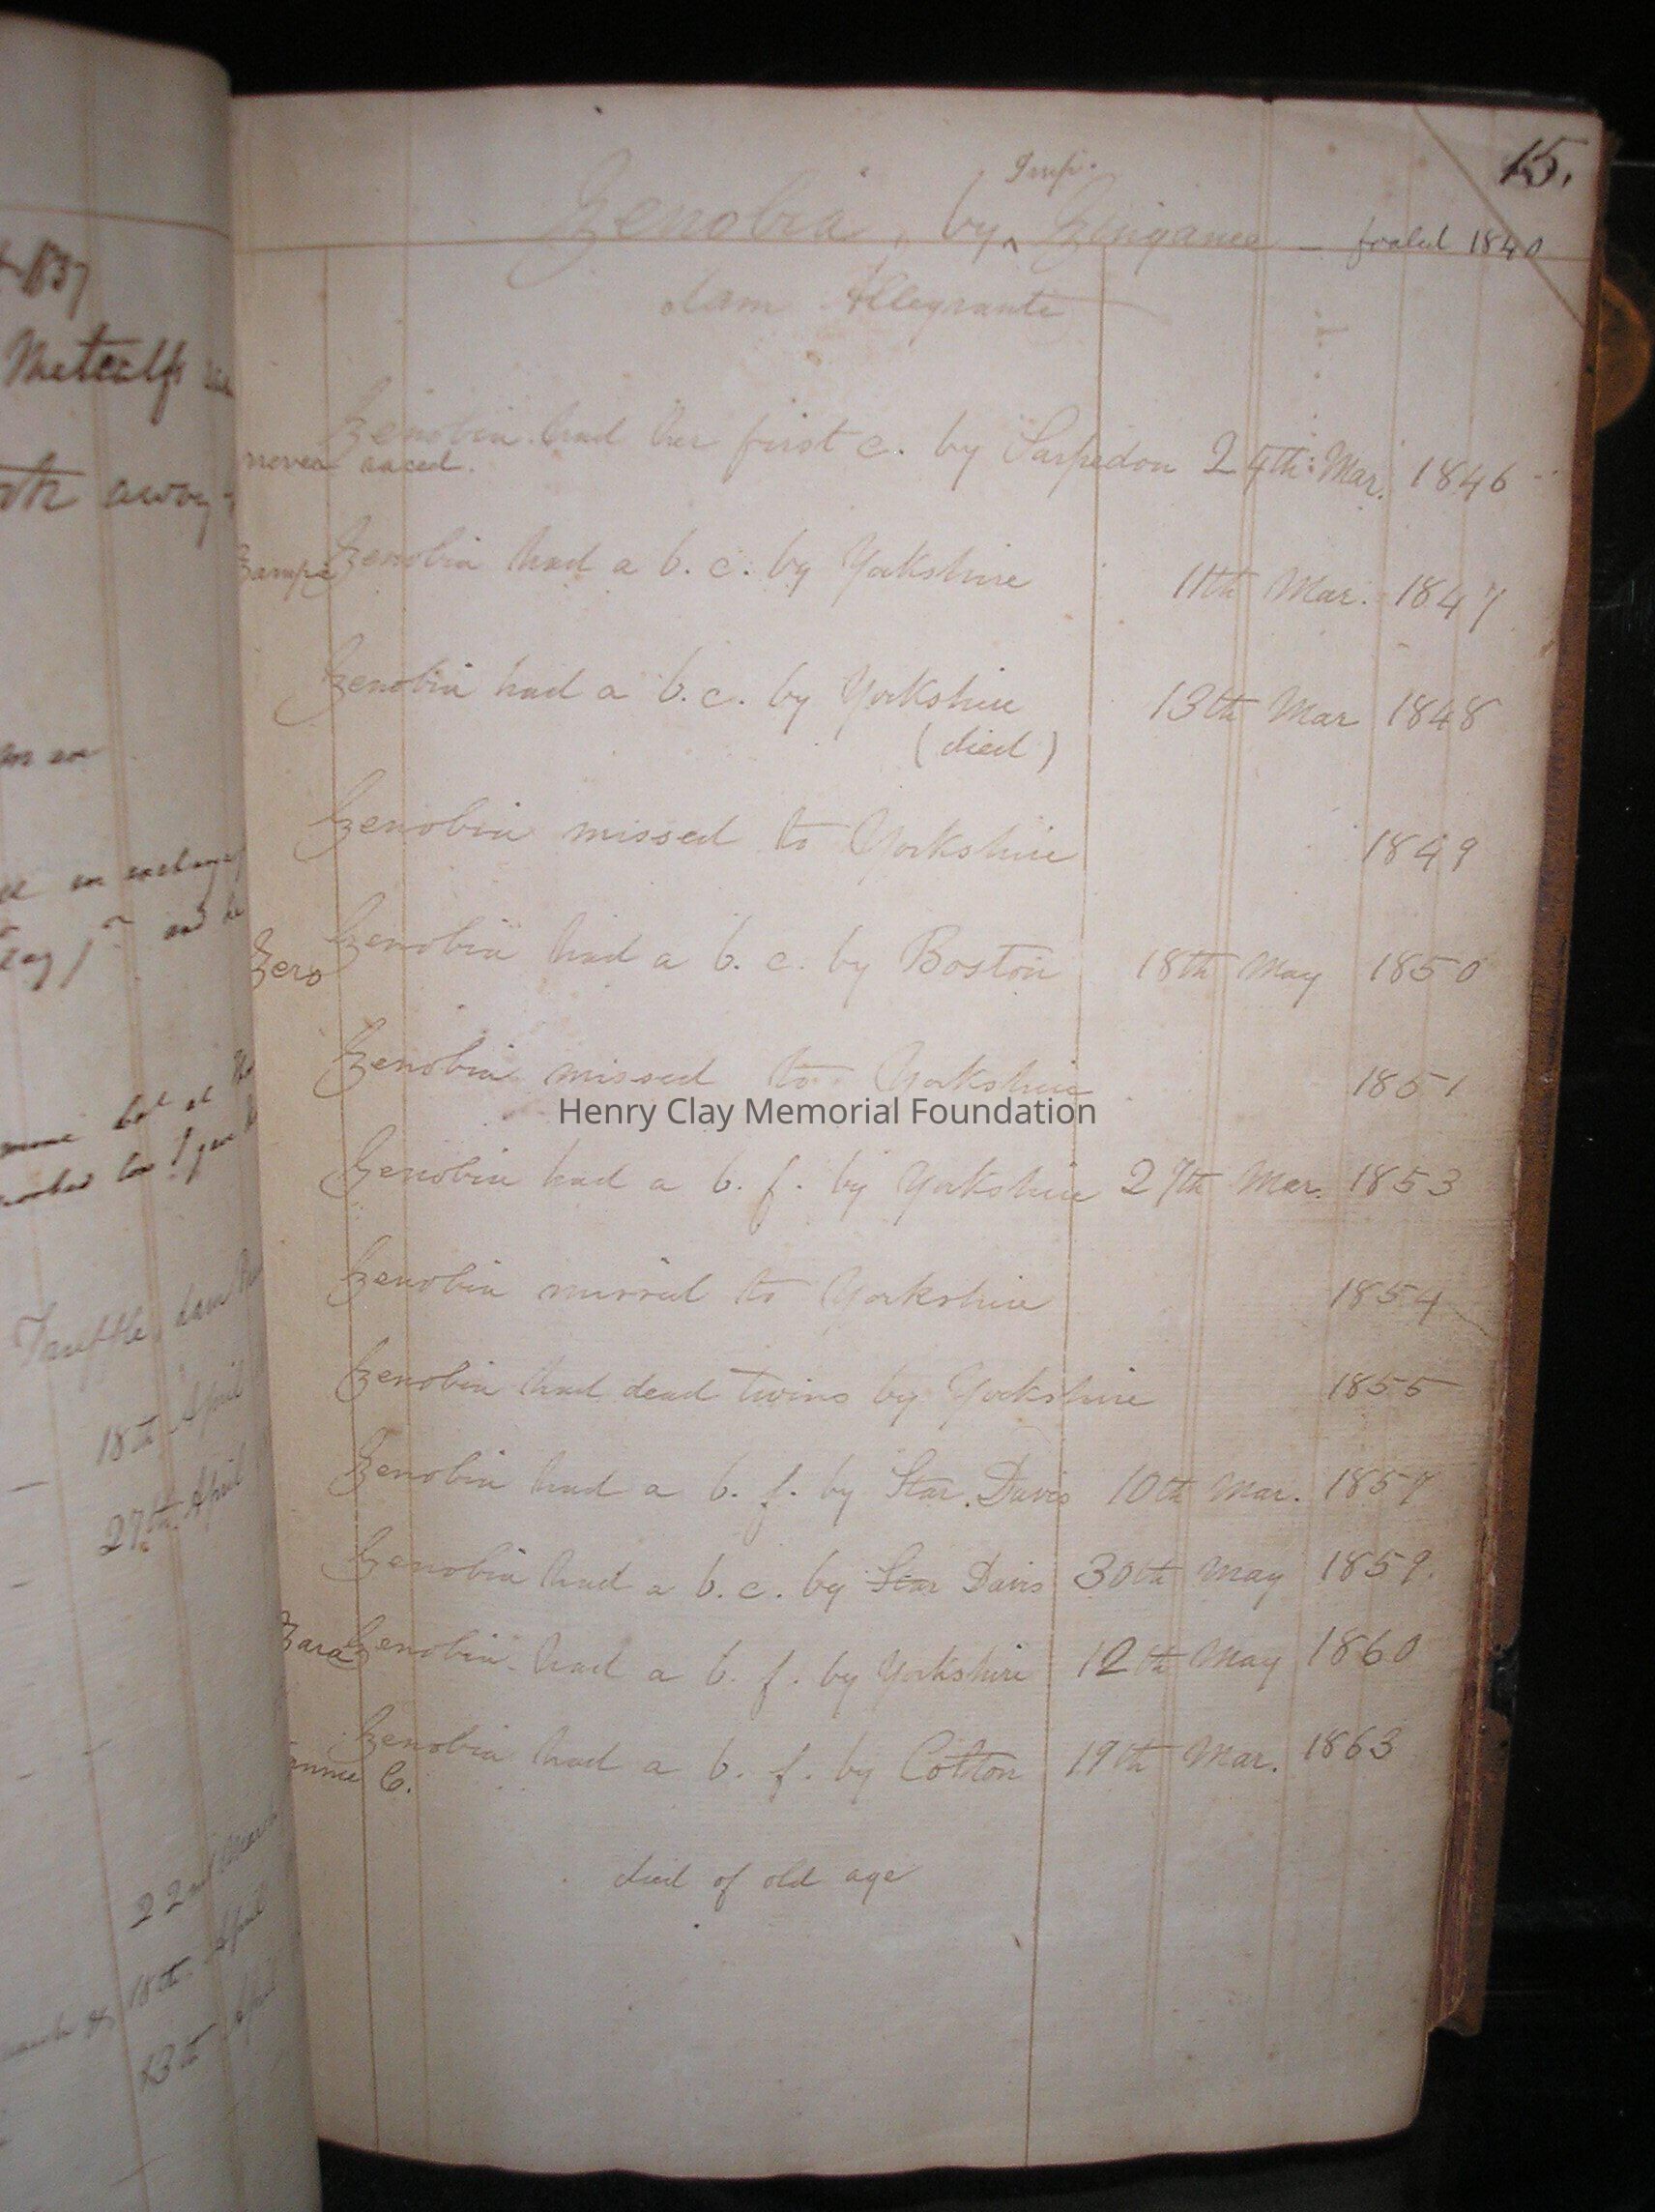 15.
Imp.
Zenobia, by ^ Zinganee — foaled 1840
dam Allegrante
Zenobia had her first c. by Sarpedon 24th: Mar. 1846
never raced.
Zampa Zenobia had a b. c. by Yorkshire 11th Mar. 1847
Zenobia had a b. c. by Yorkshire 13th Mar 1848
(died)
Zenobia missed to Yorkshire 1849
Zero Zenobia had a b. c. by Boston 18th May 1850
Zenobia missed to Yorkshire 1851
Henry Clay Memorial Foundation
Zenobia had a b. f. by Yorkshire 27th Mar. 1853
Zenobia missed to Yorkshire 1854
Zenobia had dead twins by Yorkshire 1855
Zenobia had a b. f. by Star Davis 10th Mar. 1857
Zenobia had a b. c. by Star Davis 30th May 1859.
Zara Zenobia had a b. f. by Yorkshire 12th May 1860
Zenobia had a b. f. by Cotton 19th Mar. 1863
C.
died of old age
Metcalfs
away
in exchange
and he
at
Truffle, dam
18th April
27th April
22nd March
18th April
13th April